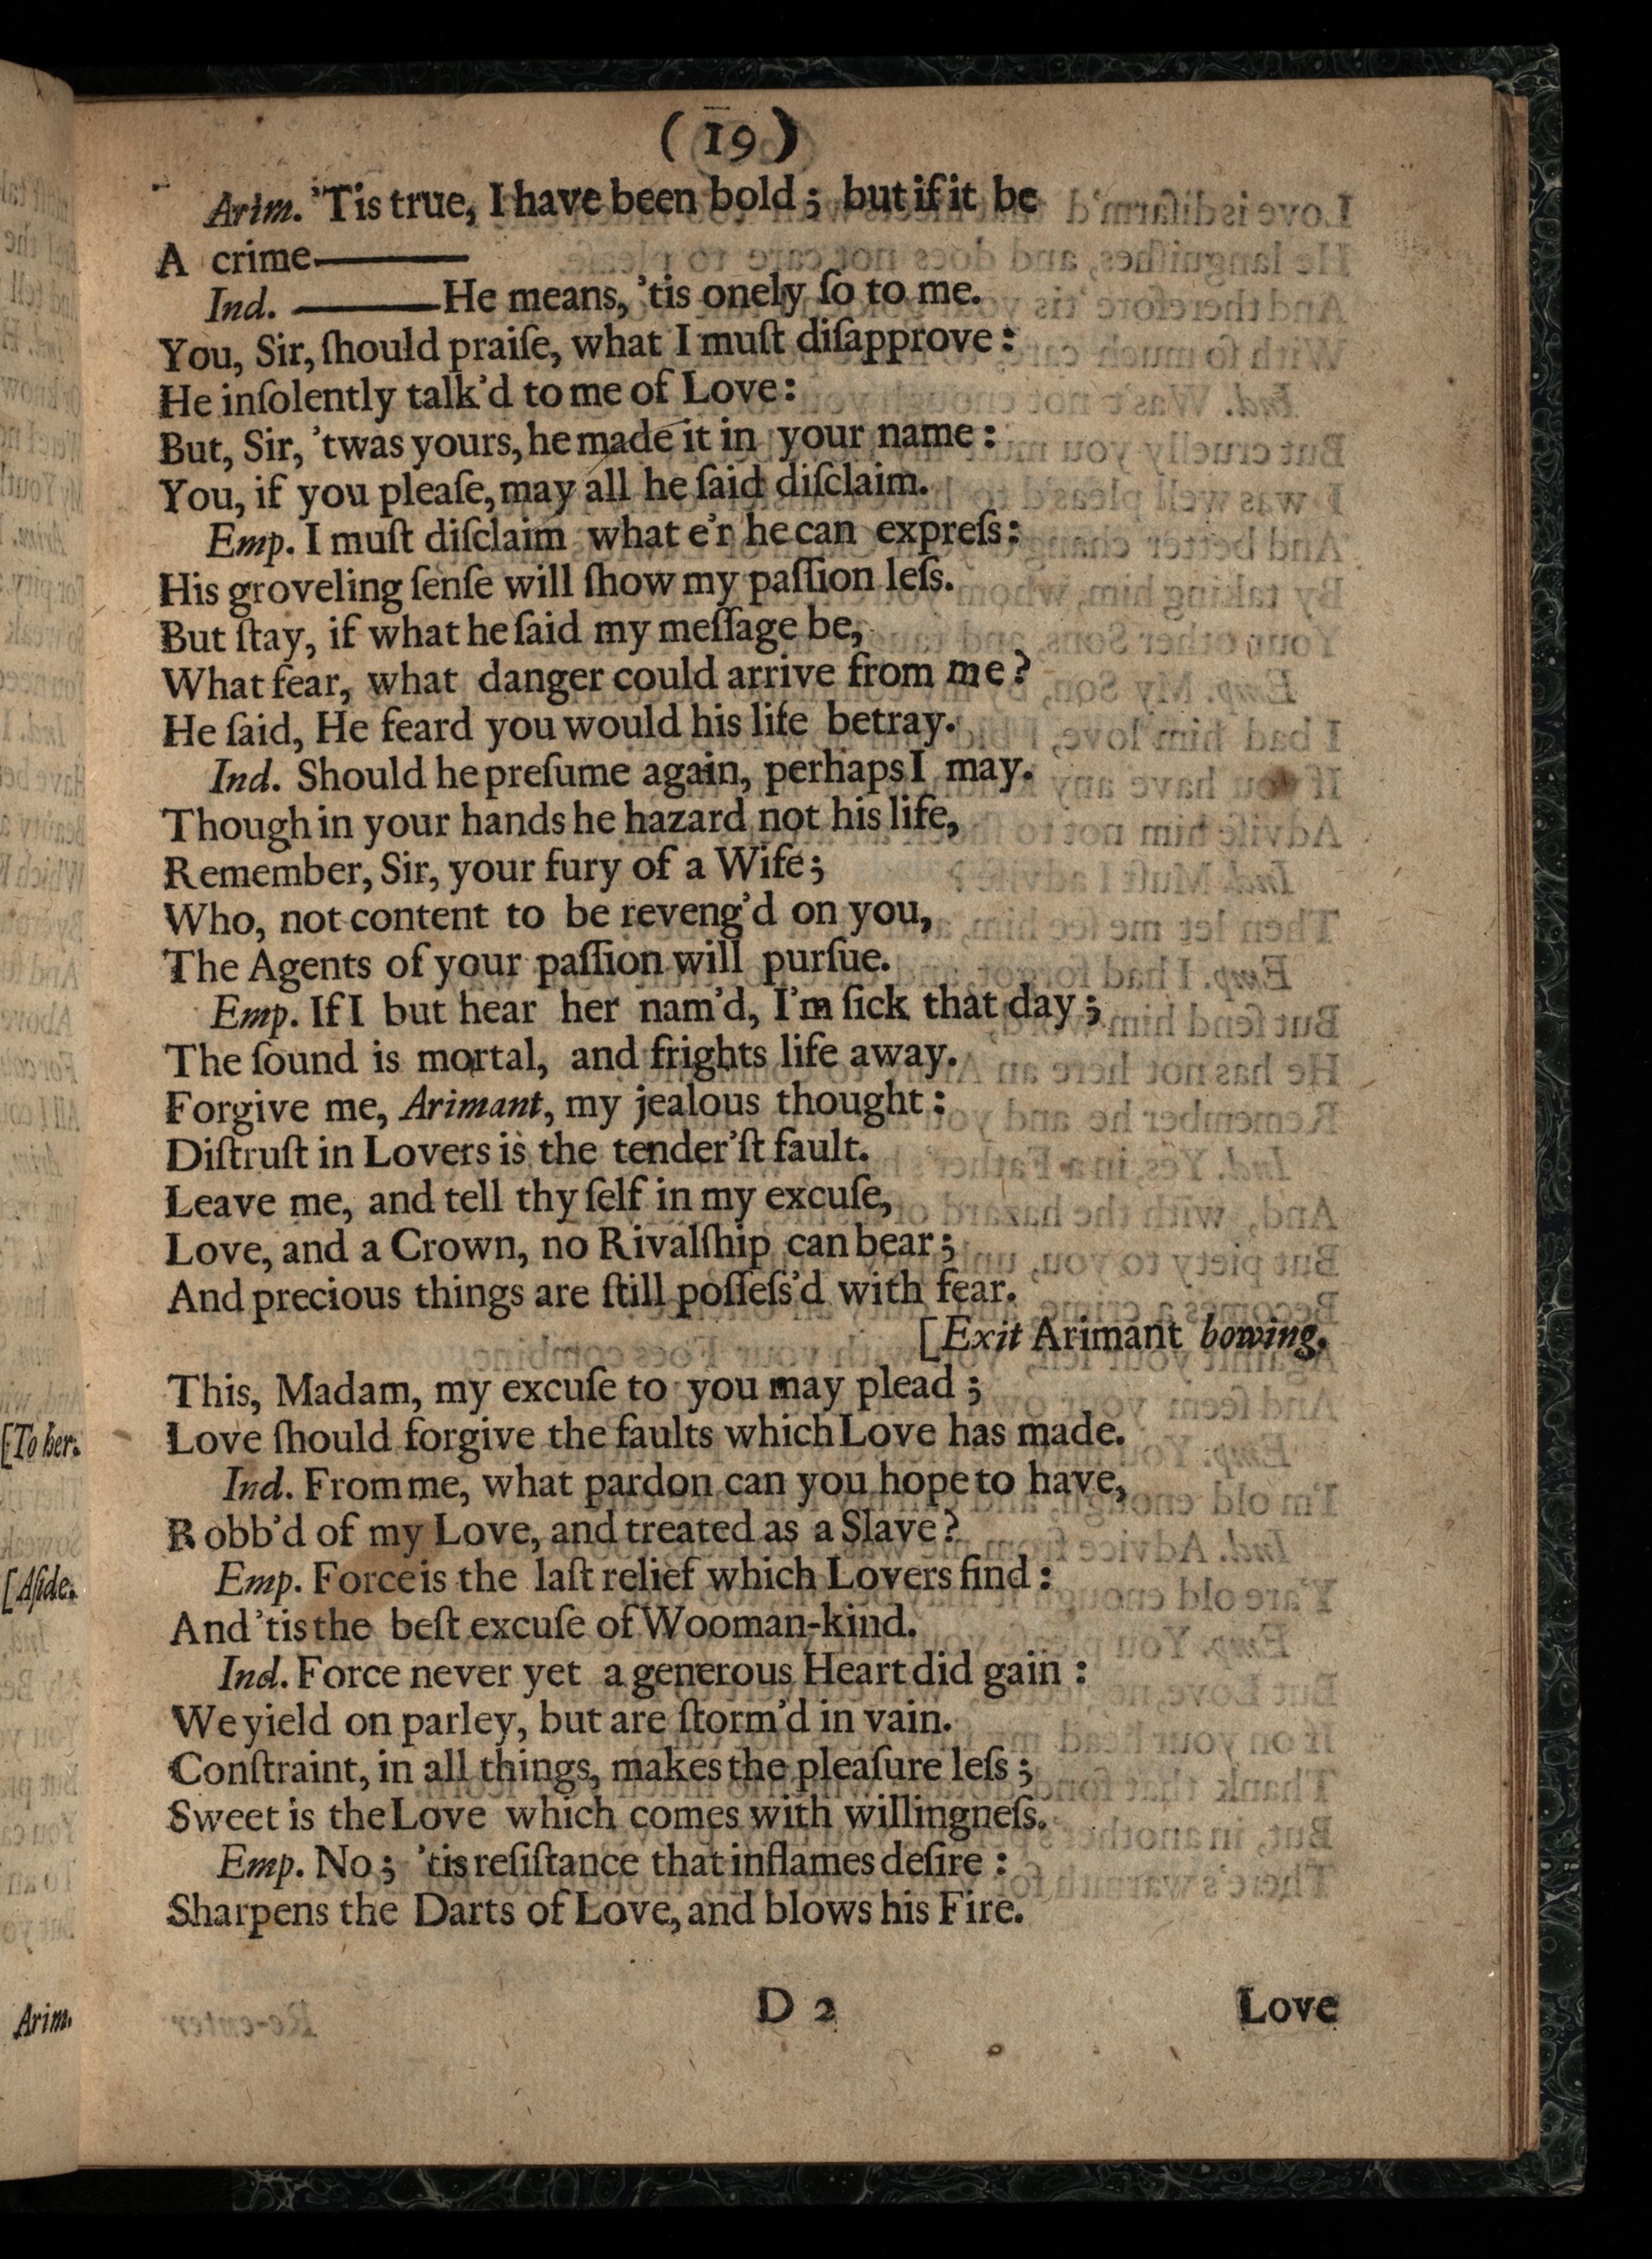 (19)
Arim. 'Tis true, I have been bold; but if it be
A crime———
Ind. ———He means, 'tis onely ſo to me.
You, Sir, ſhould praiſe, what I muſt diſapprove:
He inſolently talk'd to me of Love:
But, Sir, 'twas yours, he made it in your name:
You, if you pleaſe, may all he ſaid diſclaim.
Emp. I muſt diſclaim what e'r he can expreſs:
His groveling ſenſe will ſhow my paſſion leſs.
But ſtay, if what he ſaid my meſſage be,
What fear, what danger could arrive from me?
He ſaid, He feard you would his life betray.
Ind. Should he preſume again, perhaps I may.
Though in your hands he hazard not his life,
Remember, Sir, your fury of a Wife;
Who, not content to be reveng'd on you,
The Agents of your paſſion will purſue.
Emp. If I but hear her nam'd, I'm ſick that day;
The ſound is mortal, and frights life away.
Forgive me, Arimant, my jealous thought:
Diſtruſt in Lovers is the tender'ſt fault.
Leave me, and tell thy ſelf in my excuſe,
Love, and a Crown, no Rivalſhip can bear;
And precious things are ſtill poſſeſs'd with fear.
[Exit Arimant bowing.
This, Madam, my excuſe to you may plead;
Love ſhould forgive the faults which Love has made.
Ind. From me, what pardon can you hope to have,
Robb'd of my Love, and treated as a Slave?
Emp. Force is the laſt relief which Lovers find:
And 'tis the beſt excuſe of Wooman-kind.
Ind. Force never yet a generous Heart did gain:
We yield on parley, but are ſtorm'd in vain.
Conſtraint, in all things, makes the pleaſure leſs;
Sweet is the Love which comes with willingneſs.
Emp. No; 'tis reſiſtance that inflames deſire:
Sharpens the Darts of Love, and blows his Fire.
D 2
Love
[To her.
[Aſide.
Arim.